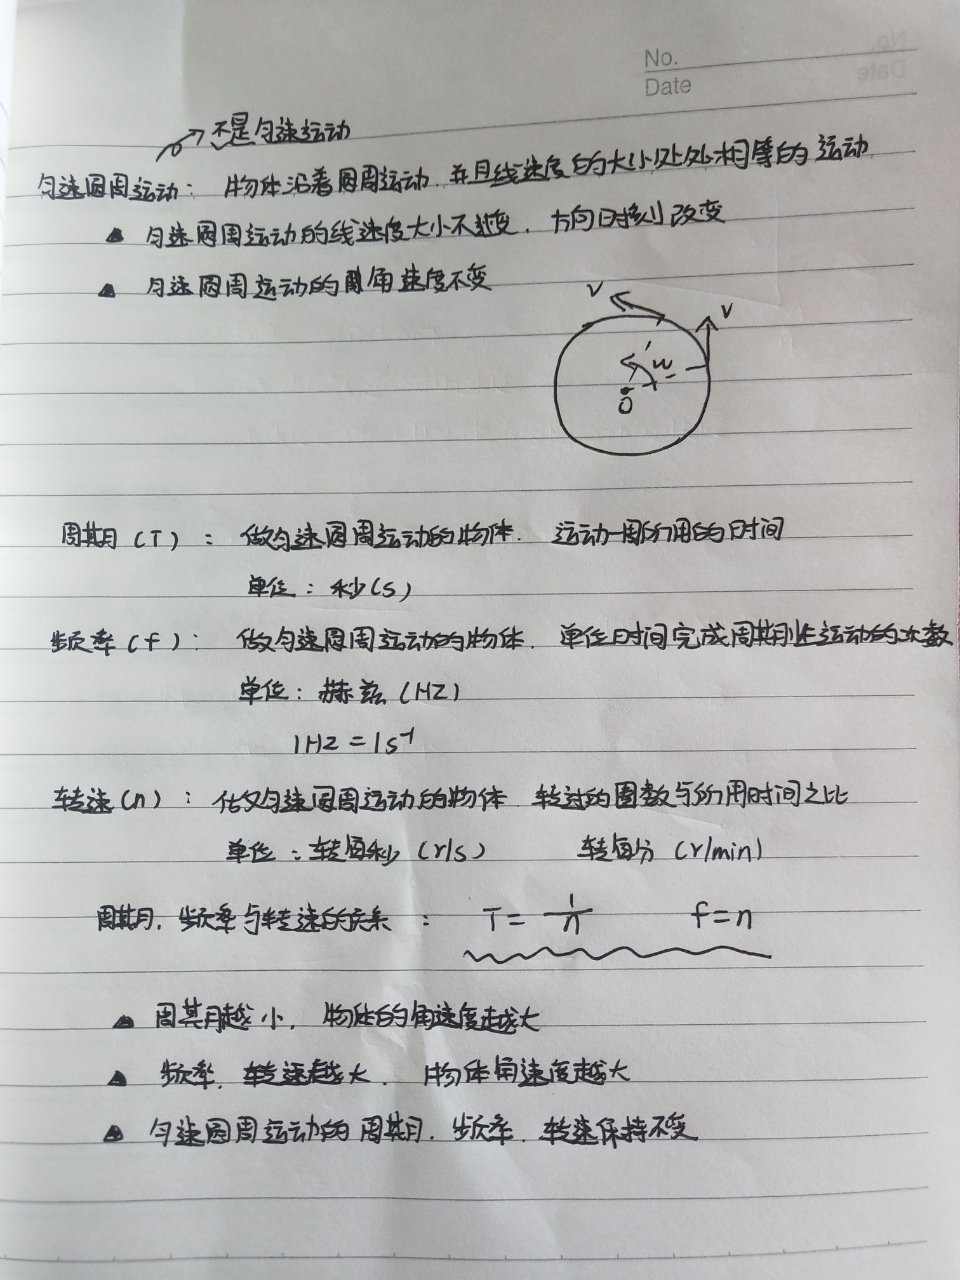 No.
Date
不是匀速运动
匀速圆周运动：物体沿着圆周运动，并且线速度的大小处处相等的运动
▲ 匀速圆周运动的线速度大小不变，方向时刻改变
▲ 匀速圆周运动的角速度不变
v
v
w
O
周期（T）：做匀速圆周运动的物体，运动一周所用的时间
单位：秒（s）
频率（f）：做匀速圆周运动的物体，单位时间完成周期性运动的次数
单位：赫兹（HZ）
1HZ = 1s⁻¹
转速（n）：做匀速圆周运动的物体 转过的圈数与所用时间之比
单位：转每秒（r/s） 转每分（r/min）
周期，频率与转速的关系： T = 1/n f = n
▲ 周期越小，物体的角速度越大
▲ 频率，转速越大，物体角速度越大
▲ 匀速圆周运动的周期，频率，转速保持不变